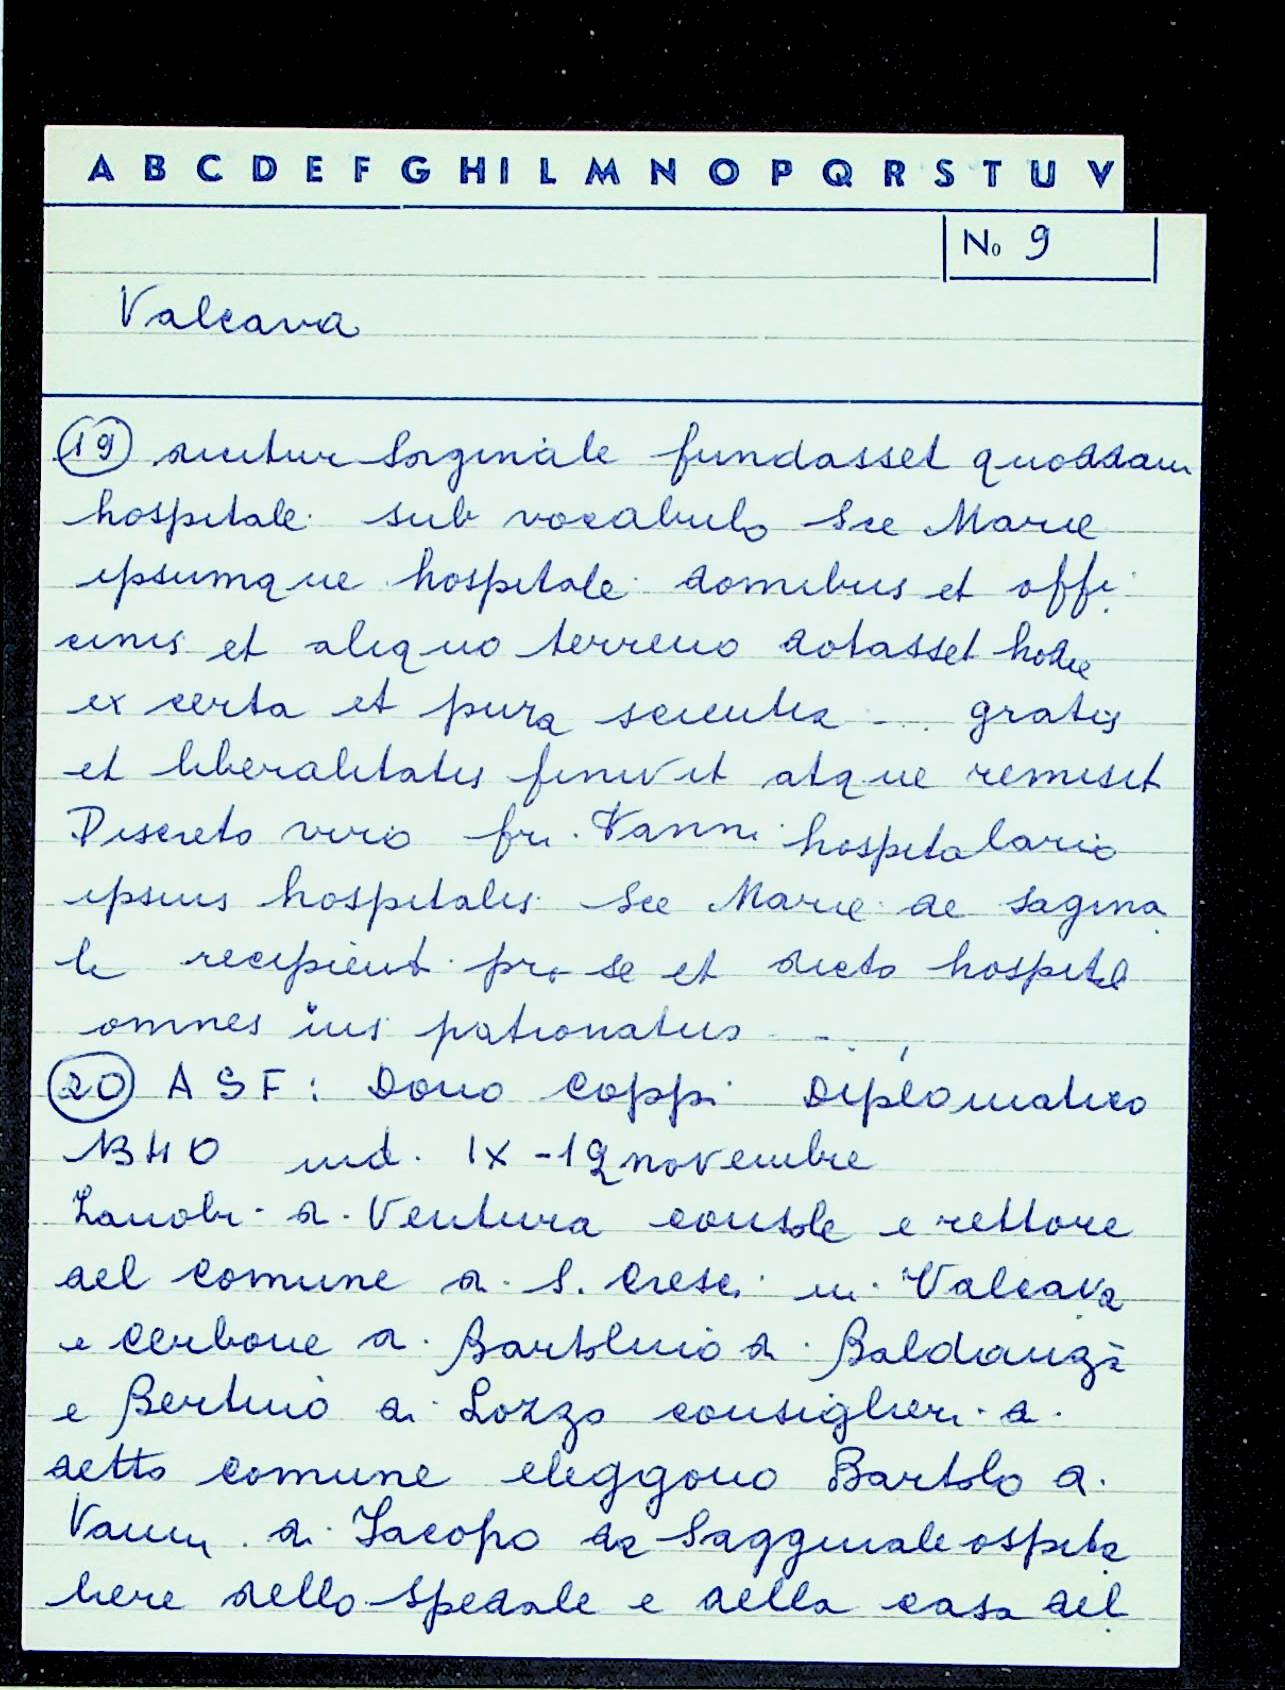 A B C D E F G H I L M N O P Q R S T U V
No 9
Valcava
19 dicitur Saginale fundasset quoddam
hospitale sub vocabulo Sce Marie
ipsumque hospitale domibus et offi
cinis et aliquo terreno dotasset hodie
ex certa et pura scientia ... gratis
et liberalitatis finivit atque remisit
Discreto viro fri. Vanni hospitalario
ipsius hospitalis Sce Marie de Sagina
le recipient pro se et dicto hospital
omnes ius patronatus ...,
20 ASF: Dono Coppi Diplomatico
1340 ind. IX - 12 novembre
Zanobi di Ventura console e rettore
del comune di S. Cresci in Valcava
e Cerbone di Bartolino di Baldanza
e Bertino di Lozzo consiglieri di
detto comune eleggono Bartolo di
Vanni di Jacopo da Sagginale ospita
liere dello spedale e della casa del